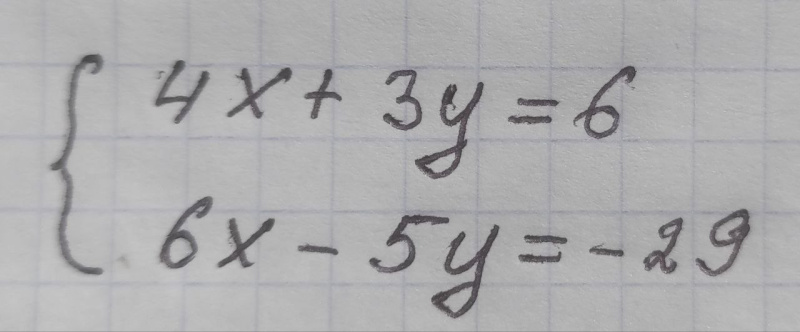 4x + 3y = 6
6x - 5y = -29